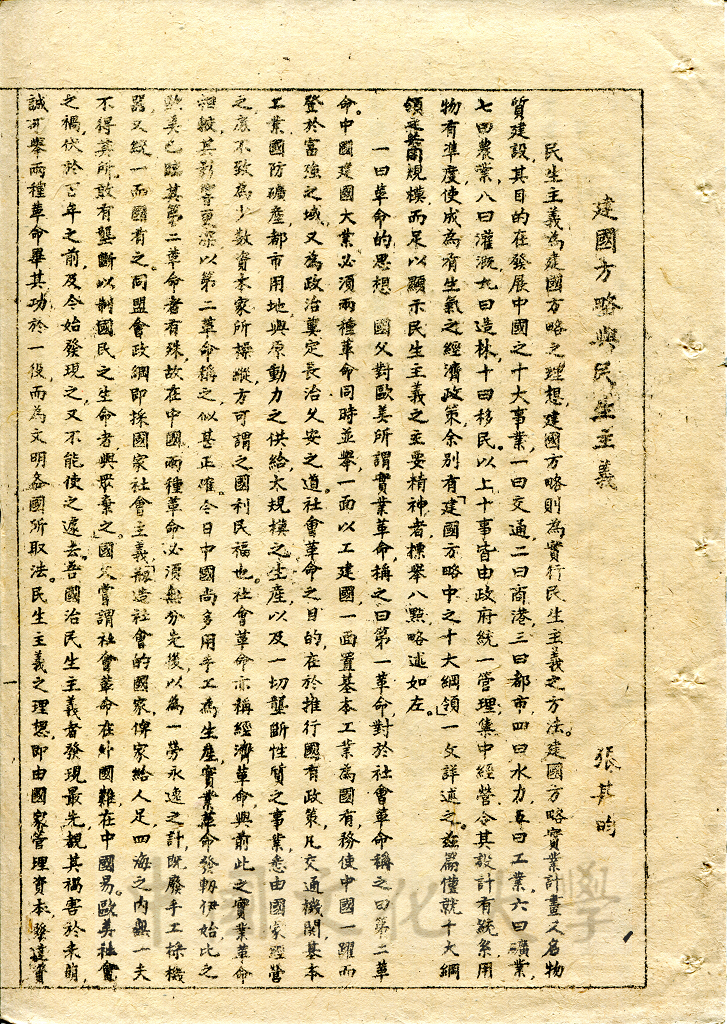 建國方略與民生主義
張其昀
民生主義為建國方略之理想，建國方略則為實行民生主義之方法。建國方略實業計畫又名物
質建設，其目的在發展中國之十大事業，一曰交通二曰商港三曰都市四曰水力五曰工業六曰礦業，
七曰農業八曰灌溉九曰造林十曰移民。以上十事皆由政府統一管理，集中經營令其設計有統系用
物有準度，使成為有生氣之經濟政策，余別有「建國方略中之十大綱領」一文詳述之。茲篇僅就十大綱
領規模而足以顯示民生主義之主要精神者，標舉八點略述如左。
一曰革命的思想 國父對歐美所謂實業革命，稱之曰第一革命，對於社會革命稱之曰第二革
命。中國建國大業必須兩種革命同時並舉，一面以工建國，一面置基本工業為國有，務使中國一躍而
登於富強之域，又為政治奠定長治久安之道。社會革命之目的，在於推行國有政策，凡交通機關基本
工業國防礦產都市用地與原動力之供給，大規模之生產，以及一切壟斷性質之事業，悉由國家經營
之，庶不致為少數資本家所操縱，方可謂之國利民福也。社會革命亦稱經濟革命，與前此之實業革命
相較，其影響更深，以第二革命稱之，似甚正確。今日中國尚多用手工為生產，實業革命發軔伊始，比之
歐美已臨其第二革命者有殊，故在中國兩種革命必須無分先後，以為一勞永逸之計，既廢手工採機
器，又統一而國有之。同盟會政綱即採國家社會主義，「造社會的國家，俾家給人足，四海之內無一夫
不得其所，敢有壟斷以制國民之生命者，與眾棄之。」國父嘗謂社會革命在外國難，在中國易。歐美社會
之禍伏於百年之前，及今始發現之，又不能使之遽去。吾國治民生主義者發現最先，覩其禍害於未萌，
誠可舉兩種革命畢其功於一役，而為文明各國所取法。民生主義之理想，即由國家管理資本，發達資
中國文化大學